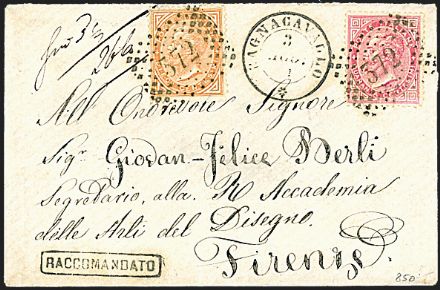 BAGNACAVALLO
3
572
572
All' Onorevole Signore
Sigr Giovan-Felice Berli
Segretario, alla R Accademia
delle Arti del Disegno.
Firenze
RACCOMANDATO
850